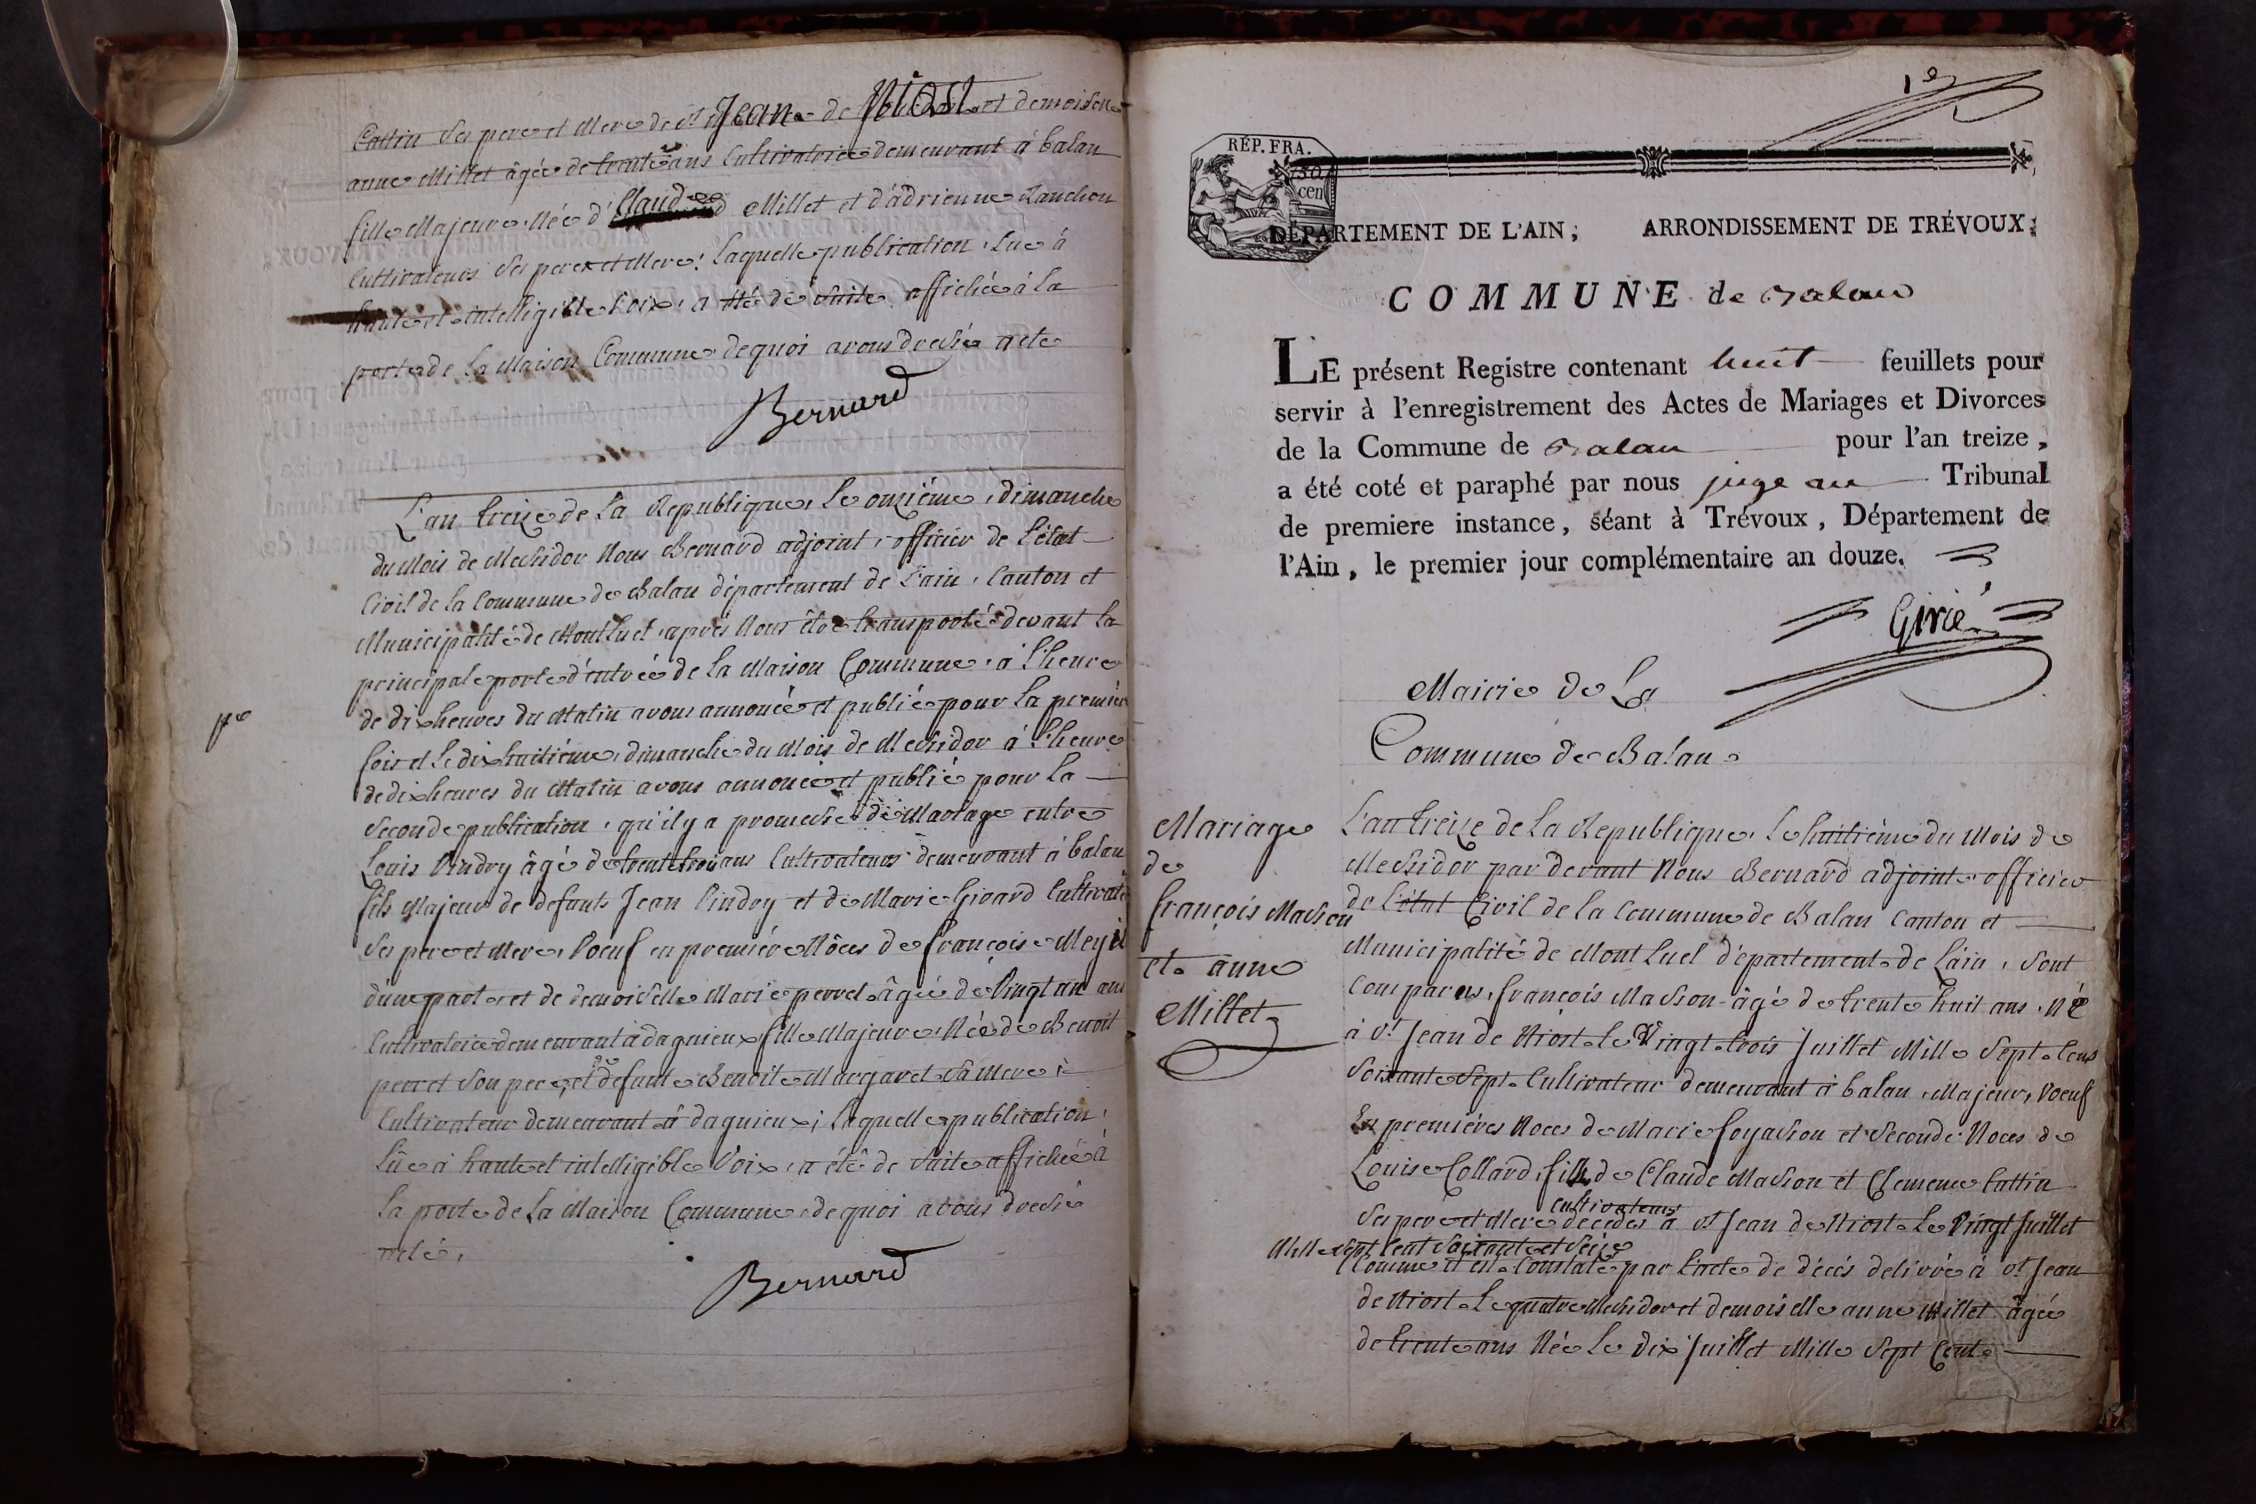 Cattin Ses pere et Mere de st Jean de Niost et demoiselle
anne Millet âgée de trente ans Cultivatrice demeurant à balan
fille Majeure Née d' Claude Millet et d'adrienne Ranchon
Cultivateurs Ses pere et Mere! Laquelle publication Lue à
haute et intelligible Voix, a été de suite affichée à la
porte de la Maison Commune dequoi avons dressée acte
Bernard
L'an treize de la Republique, Le onzième, dimanche
du Mois de Messidor Nous Bernard adjoint, officier de L'état
Civil de la Commune de Balan département de l'ain, Canton et
Municipalité de Montluel, après Nous être transporté devant la
principale porte d'entrée de la Maison Commune, à l'heure
de dix heures du Matin avons annoncé et publié pour la premiere
pre
fois et le dix huitième, dimanche du Mois de Messidor à l'heure
de dix heures du Matin avons annoncé et publié pour la
Seconde publication, qu'il y a promesse de Mariage entre
Louis Pindry âgé de trente trois ans Cultivateur demeurant à balan
fils Majeur de defunts Jean Pindry et de Marie Girard Cultivat
Ses pere et Mere, Voeuf en première Nôces de françoise
d'une part, et de demoiselle Marie perret âgée de Vingt un ans
Cultivatrice demeurant à dagnieux fille Majeure Née de Benoit
perret Son pere, et de defunte Benoite Margaret Sa Mere
Cultivateur demeurant à dagnieux; Laquelle publication,
Lûe à haute et intelligible Voix, a été de Suite affichée à
la porte de La Maison Commune, de quoi avons dressé
acte,
Bernard
1er
RÉP. FRA.
cen
DÉPARTEMENT DE L'AIN; ARRONDISSEMENT DE TRÉVOUX;
COMMUNE de Balan
LE présent Registre contenant huit feuillets pour
servir à l'enregistrement des Actes de Mariages et Divorces
de la Commune de Balan pour l'an treize,
a été coté et paraphé par nous juge au Tribunal
de premiere instance, séant à Trévoux, Département de
l'Ain, le premier jour complémentaire an douze.
Girié
Mairie de La
Commune de Balan
Mariage
de
françois Massion
et anne
Millet
L'an treize de La Republique, Le huitième du Mois de
Messidor par devant Nous Bernard adjoint officier
de l'état Civil de la Commune de Balan Canton et
Municipalité de Mont Luel département de L'ain, Sont
Comparus, françois Massion âgé de trente huit ans, Né
à st Jean de Niost Le Vingt trois Juillet Mille Sept Cens
Soixante Sept Cultivateur demeurant à balan, Majeur, Voeuf
En premières Noces de Marie foyassion et Seconde Noces de
Louise Collard, fils de Claude Massion et Clemence Cattin
cultivateurs
Ses pere et Mere décédés à st Jean de Niost Le Vingt Juillet
Mille Sept Cent Soixante et Seize
Comme il est Constaté par l'acte de décés delivré à st Jean
de Niost Le quatre Messidor et demoiselle anne Millet âgée
de trente ans Née Le dix Juillet Mille Sept Cent